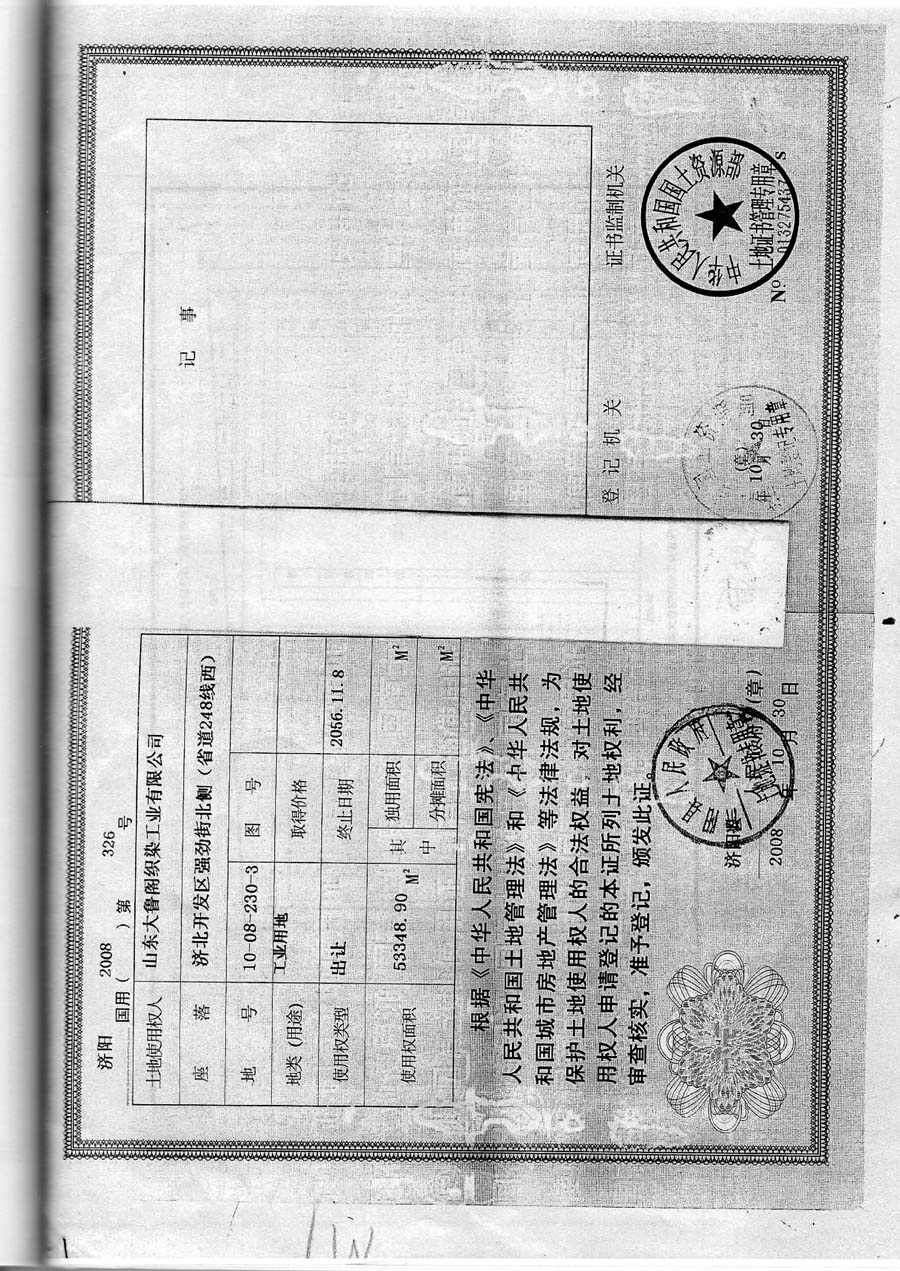 济阳 国用（2008）第 326 号
土地使用权人 山东大鲁阁织染工业有限公司
座 落 济北开发区强劲街北侧（省道248线西）
地 号 10-08-230-3 图 号
地类（用途） 工业用地 取得价格
使用权类型 出让 终止日期 2056.11.8
使用权面积 53348.90 M² 其中 独用面积 M²
分摊面积 M²
根据《中华人民共和国宪法》、《中华
人民共和国土地管理法》和《中华人民共
和国城市房地产管理法》等法律法规，为
保护土地使用权人的合法权益，对土地使
用权人申请登记的本证所列土地权利，经
审查核实，准予登记，颁发此证。
济阳县 人民政府（章）
2008 年 10 月 30 日
记 事
登 记 机 关
年 10 月 30 日
证书监制机关
中华人民共和国国土资源部
土地证书管理专用章
Nº 013275437 S